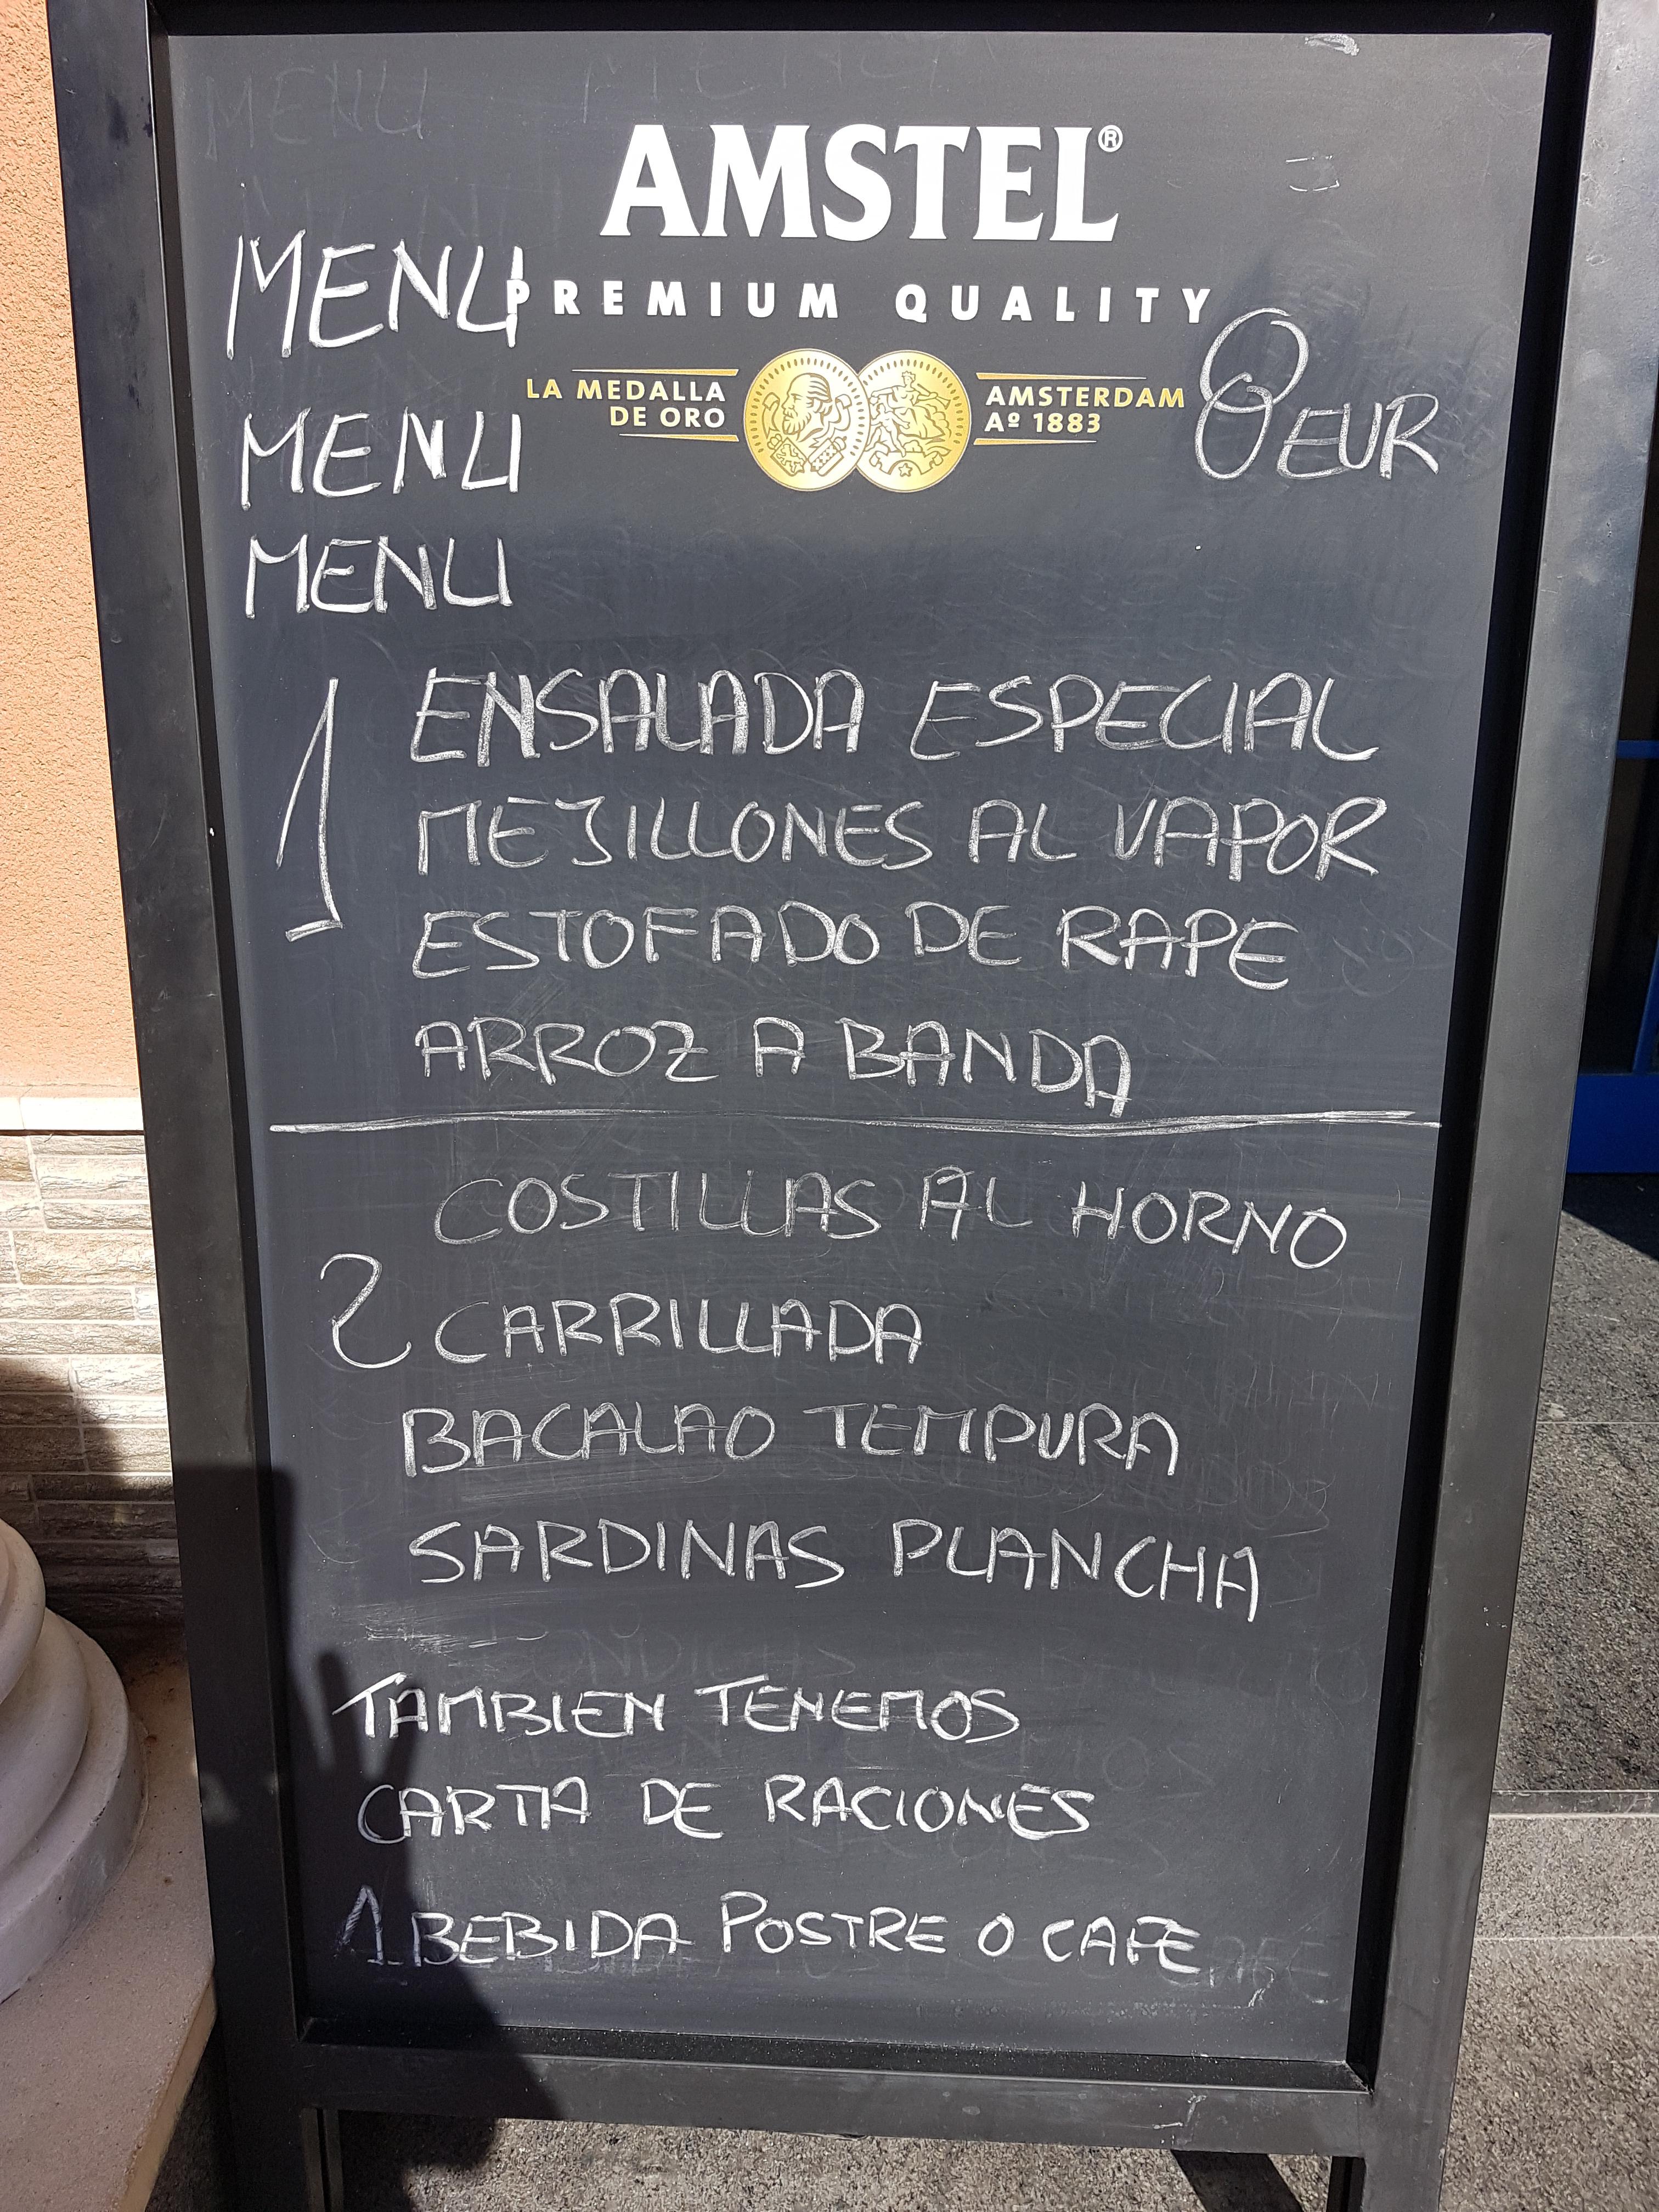 AMSTEL®
MENU
PREMIUM QUALITY
LA MEDALLA
DE ORO
AMSTERDAM
Aº 1883
8 EUR
MENU
MENU
1
ENSALADA ESPECIAL
MEJILLONES AL VAPOR
ESTOFADO DE RAPE
ARROZ A BANDA
COSTILLAS AL HORNO
2 CARRILLADA
BACALAO TEMPURA
SARDINAS PLANCHA
TAMBIEN TENEMOS
CARTA DE RACIONES
1 BEBIDA POSTRE O CAFE